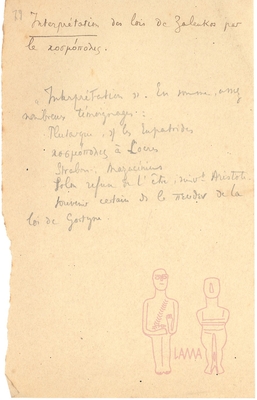 Interprétation des lois de Zaleukos par
le κοσμόπολις.
"Interprétation". En somme, assez
nombreux témoignages :
Plutarque, les Eupatrides
κοσμόπολις à Locres
Strabon. Mazaciniens
Solon refusa de l'être, suiv.t Aristote
souvenir certain de la
loi de Gortyne.
LAMA